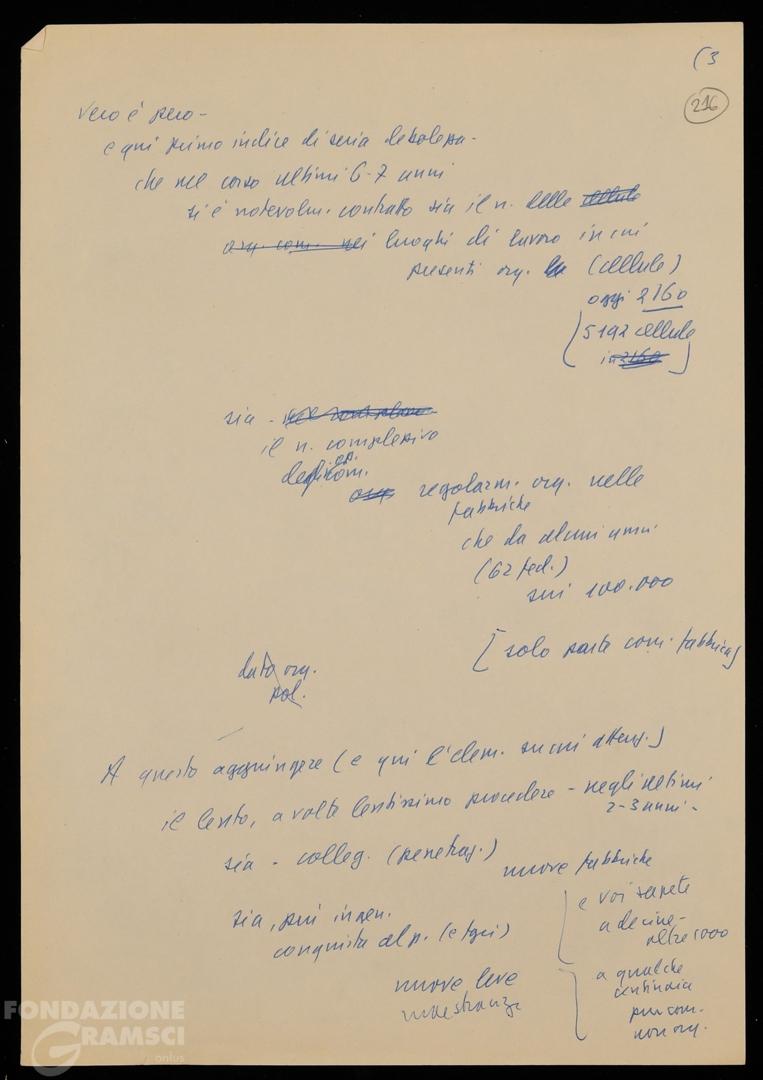 (3
216
Vero è però -
e qui primo indice di seria debolezza -
che nel corso ultimi 6-7 anni
si è notevolm. contratto sia il n. delle cellule
org. com. nei luoghi di lavoro in cui
presenti org. (cellule)
oggi 2160
(5192 cellule
in 2160)
sia - nel complesso
il n. complessivo
degli op. com.
org. regolarm. org. nelle
fabbriche
che da alcuni anni
(62 fed.)
sui 100.000
[solo parte com. fabbrica]
dato org.
pol.
A questo aggiungere (e qui l'elem. su cui attenz.)
il lento, a volte lentissimo procedere - negli ultimi
2-3 anni -
sia - colleg. (penetraz.)
nuove fabbriche
e voi sapete
a decine -
oltre 1000
sia, più in gen.
conquista al p. (e fgci)
nuove leve
maestranze
a qualche
centinaia
pur com.
non org.
FONDAZIONE
GRAMSCI
onlus